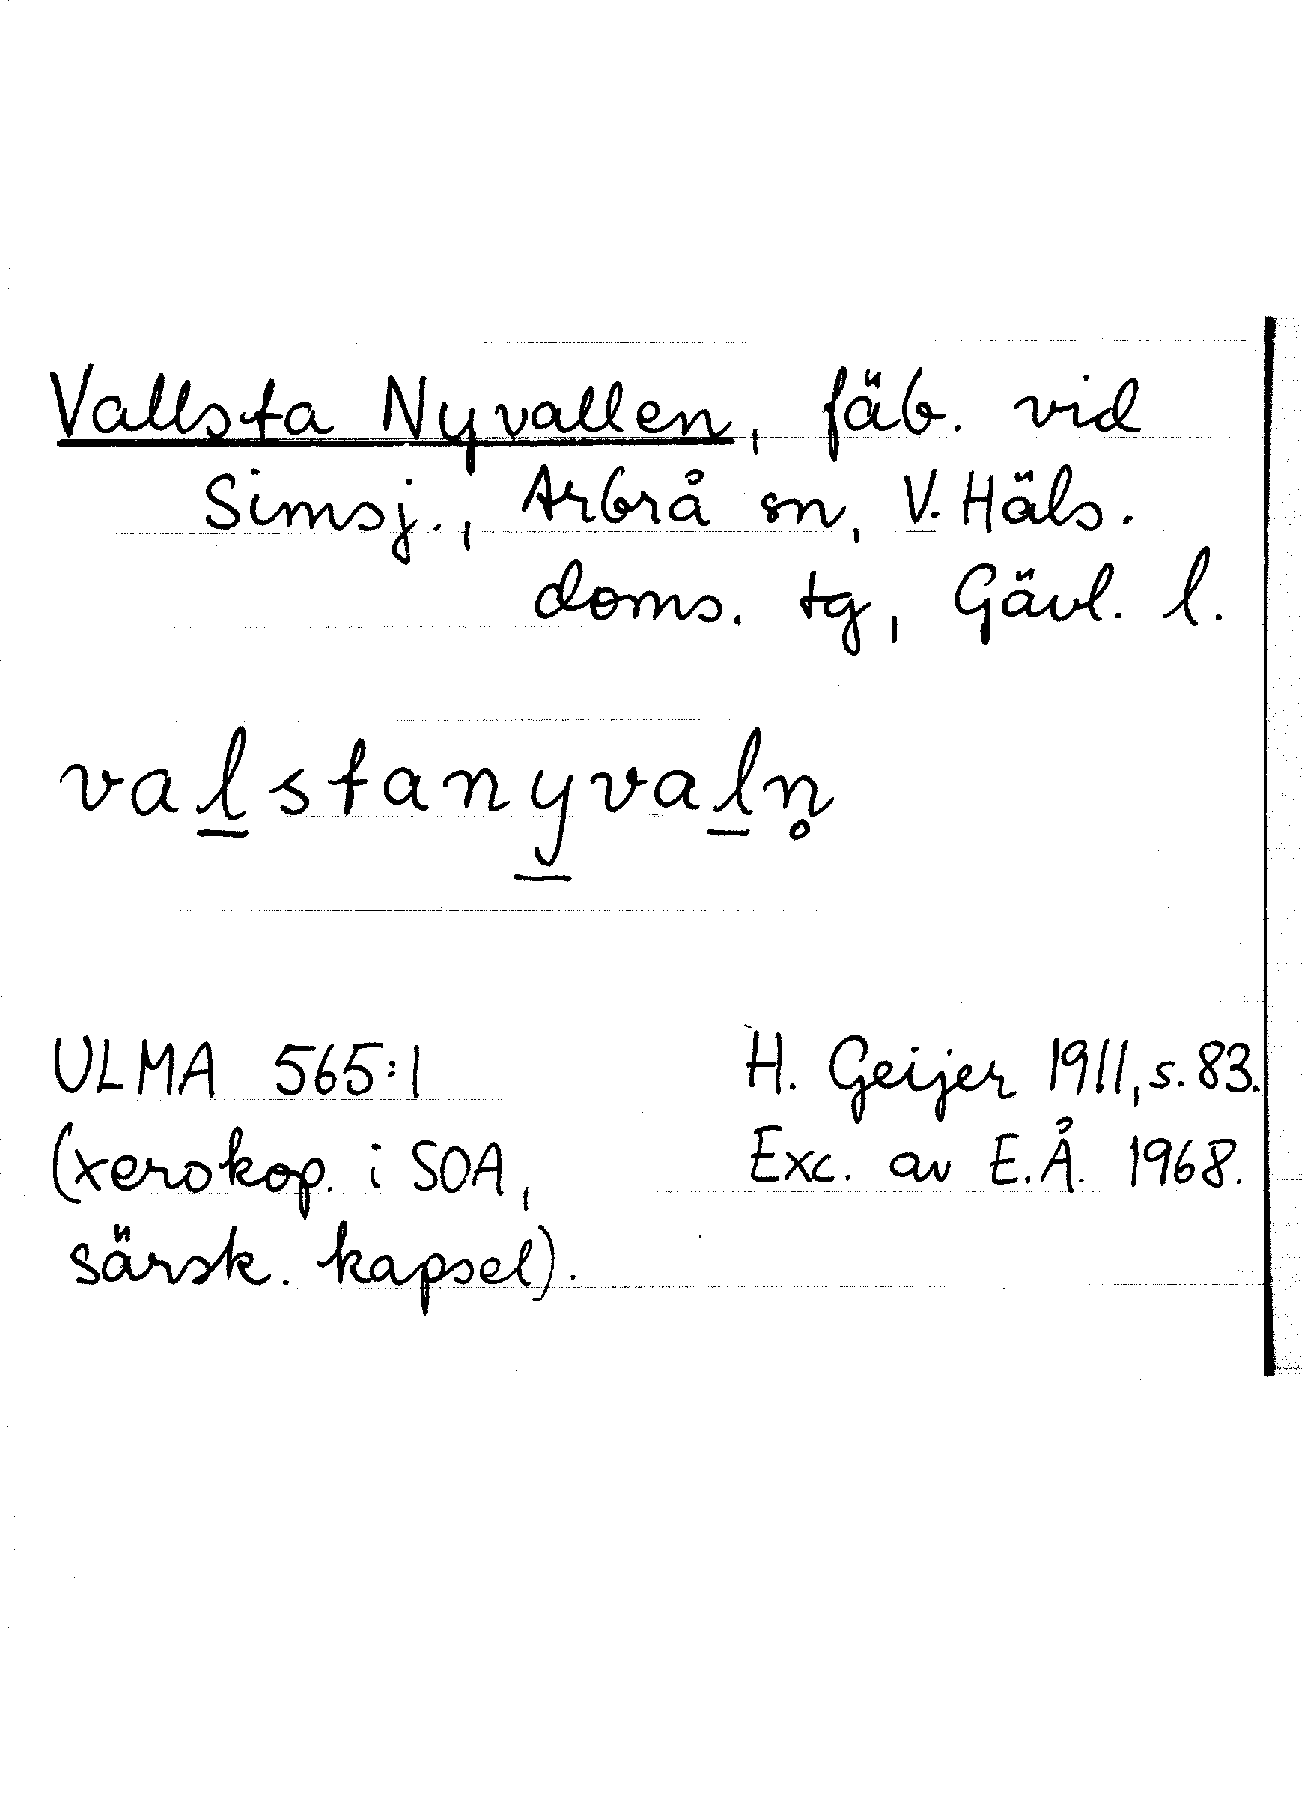 Vallsta Nyvallen, fäb. vid
Simsj., Arbrå sn, V. Häls.
doms. tg, Gävl. l.
val̲stany̲val̲n̥
ULMA 565:1
(xerokop. i SOA,
särsk. kapsel).
H. Geijer 1911, s. 83.
Exc. av E.Å. 1968.